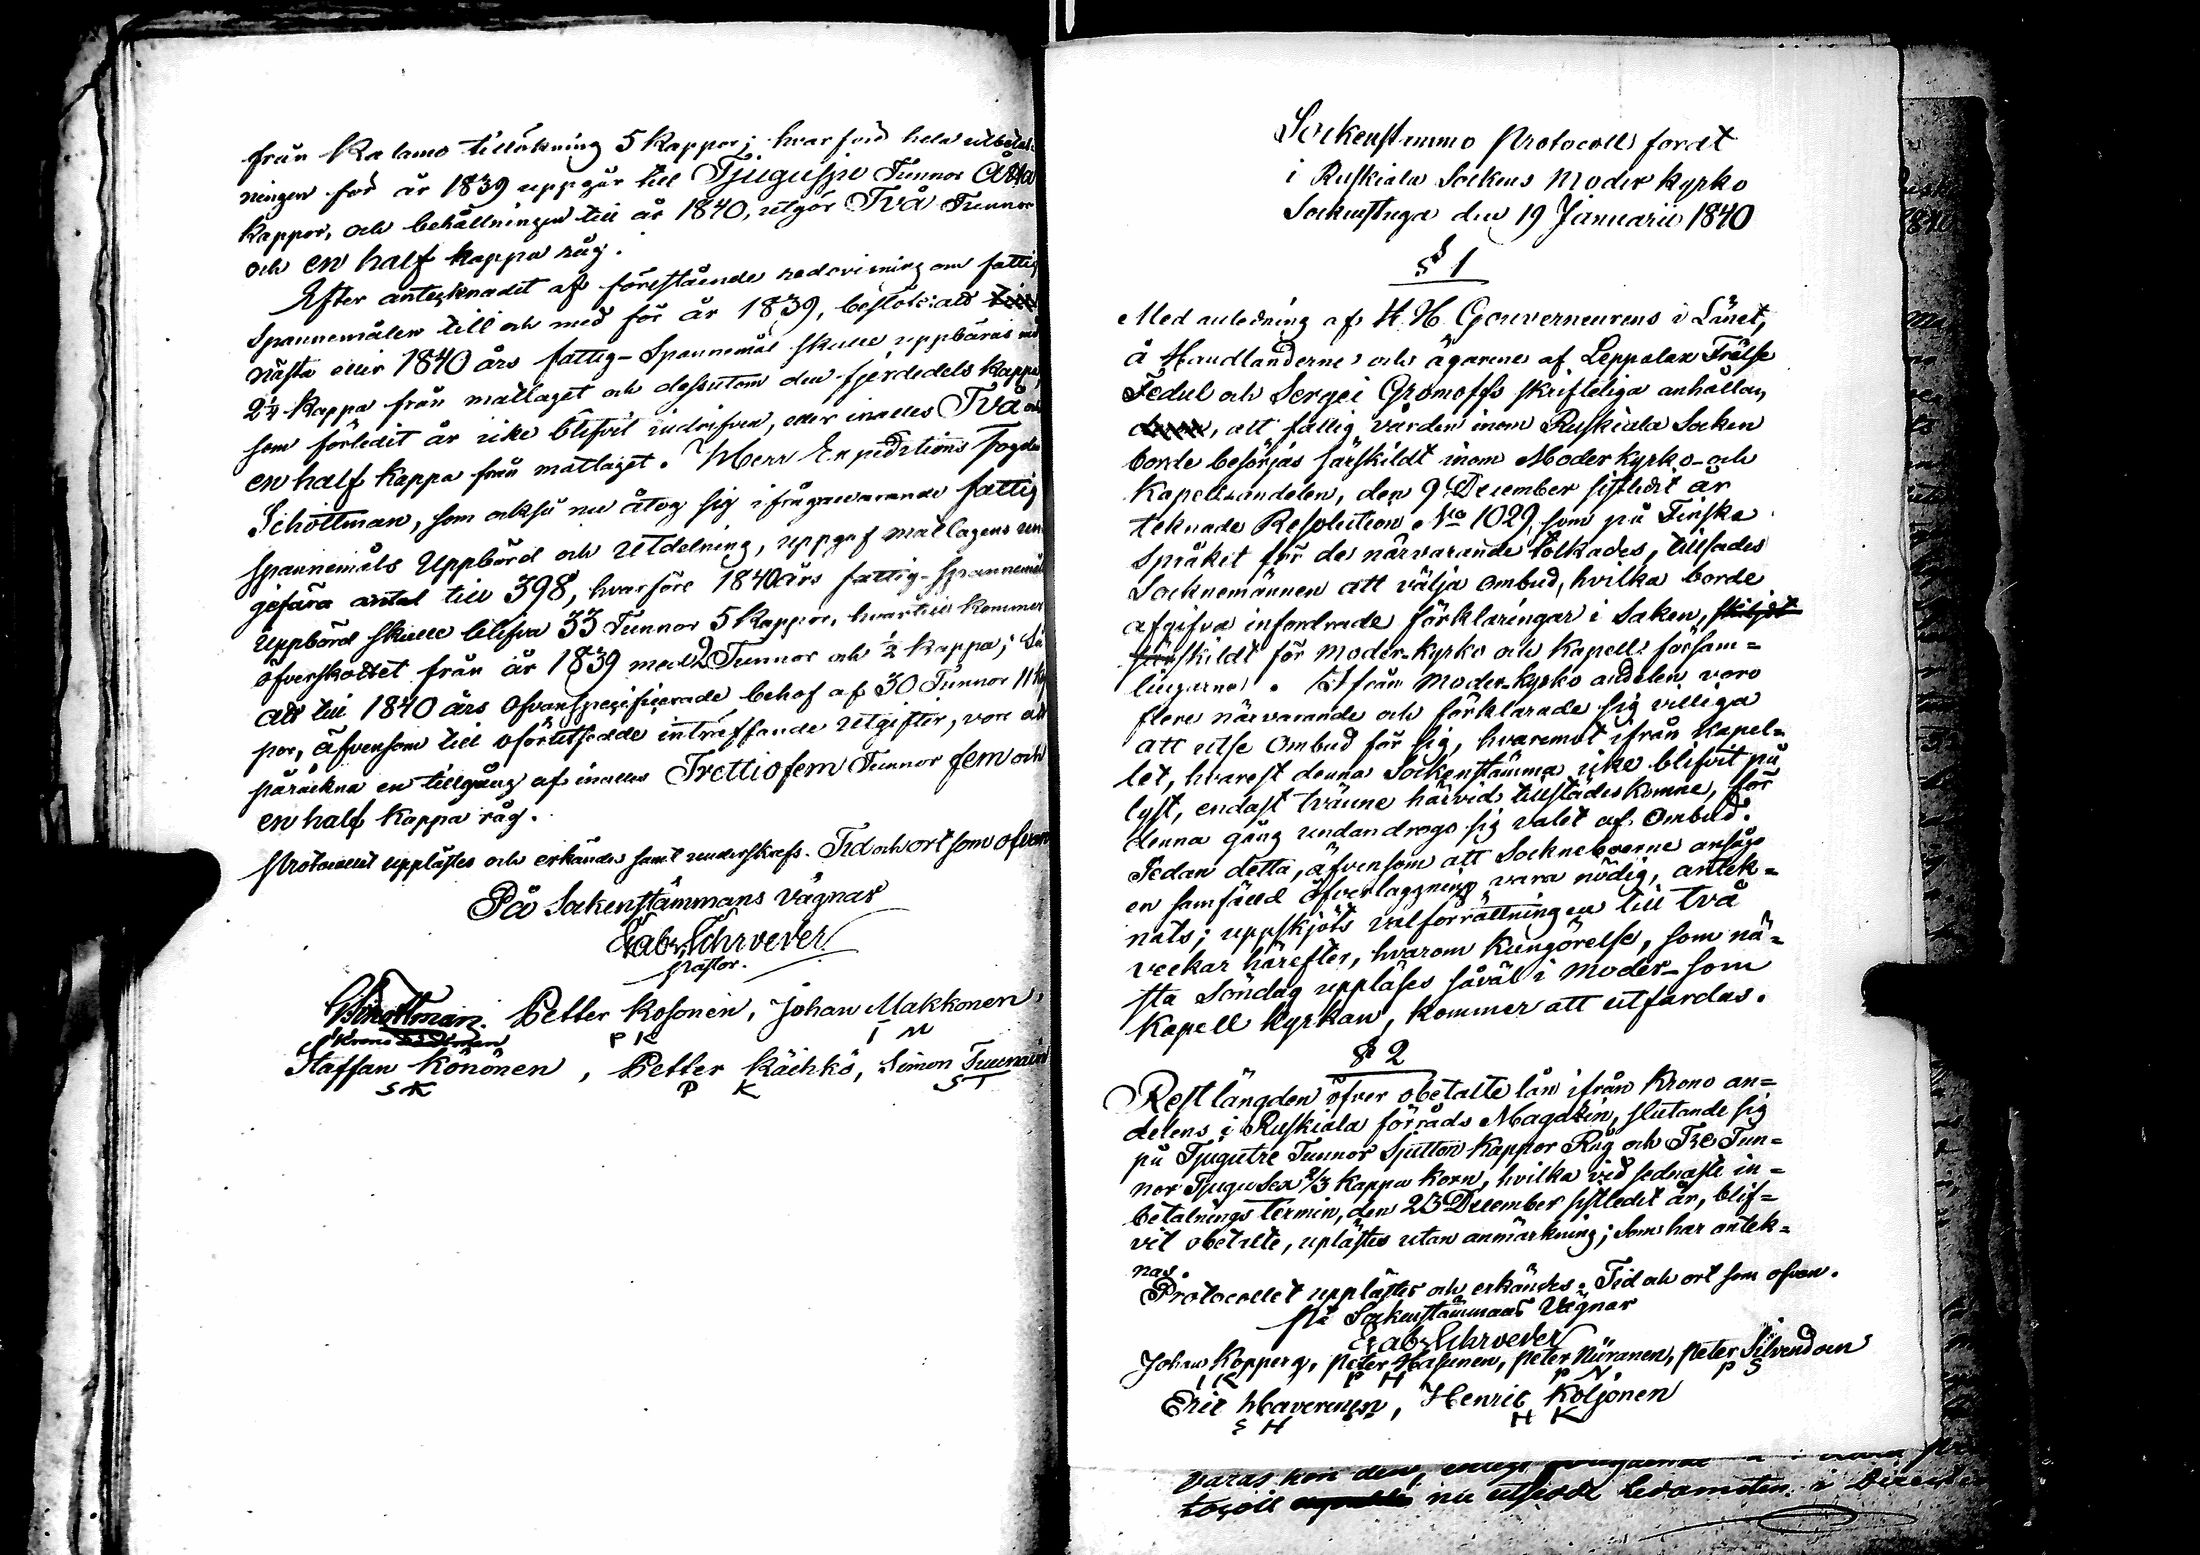 från Kalamo tillökning 5 Kappor; hvarförd hela utbetal-
ningen för år 1839 uppgår till Tjugusju Tunnor Åtta
kappor, och behållningen till år 1840, utgör Två Tunnor
och en half kappa råg.
Efter antecknadet af förestående redovisning om fattig
Spannemålen till och med för år 1839, beslöts: att
nästa eller 1840 års fattig-Spannemål skulle uppbäras med
2 1/4 Kappa från matlaget och dessutom den fjerdedels kappa,
som förledit år icke blifvit indrifven, eller inalles Två och
en half kappa från matlaget. Herr Expeditions Fogden
Schottman, som också nu åtog sig ifrågavarande fattig
spannemåls Uppbörd och Utdelning, uppgaf matlagens un
gefära antal till 398, hvarföre 1840 års fattig-spannemåls
uppbörd skulle blifva 33 Tunnor 5 Kappor, hvartill kommer
öfverskottet från år 1839 med 2 Tunnor och 1/2 kappa; Så
att till 1840 års ofvanspecificerade behof af 30 Tunnor 11 Kap
por, äfvensom till oförutsedde inträffande utgifter, vore att
påräkna en tillgång af inalles Trettiofem Tunnor fem och
en half Kappa råg.
Protocollet upplästes och erkändes samt underskrefs. Tid och ort som ofvan
På Sockenstämmans vägnar
Gab. Schroeder
Pastor.
Schottman. Petter Kosonen, Johan Makkonen,
P K I M
Staffan Könönen, Petter Räihkö, Simon Tuunainen
S K P K S T
Sockenstämmo Protocoll fördt
i Ruskiala Sockens Moder kyrko
Sockenstuga den 19 Januarii 1840
§ 1
Med anledning af H. H. Gouverneurens i Länet,
å Handlanderne och ägarene af Leppelax Frälse
Fedul och Sergei Gromoffs skrifteliga anhållan,
, att fattig vården inom Ruskiala Socken
borde besörjas särskildt inom Moder kyrko- och
Kapellsandelen, den 9 December sistledit år
teknade Resolution No 1029, som på Finska
Språket för de närvarande tolkades, tillsades
Socknemännen att välja ombud, hvilka borde
afgifva infordrade förklaringar i Saken,
särskildt för Moder-kyrko och Kapell försam=
lingarne. Ifrån Moder-kyrko andelen voro
flere närvarande och förklarade sig villiga
att utse Ombud för sig, hvaremot ifrån Kapel=
let, hvarest denna Sockenstämma icke blifvit på
lyst, endast tvänne härvid tillstädeskomne, för
denna gång undandrogo sig valet af Ombud.
Sedan detta, äfvensom att Sockneborne ansågo
en samfäld öfverläggning vara nödig, antek=
nats; uppskjöts valförrättningen till två
veckor härefter, hvarom kungörelse, som nä=
sta Söndag uppläses såväl i Moder- som
Kapell kyrkan, kommer att utfärdas.
§ 2
Restlängden öfver obetalte lån ifrån Krono an=
delens i Ruskiala förråds Magazin, slutande sig
på Tjugutre Tunnor Sjutton Kappor Råg och Tre Tun=
nor Tjugusex 2/3 Kappa Korn, hvilka vid sednaste in=
betalnings termin, den 23 December sistledit år, blif=
vit obetalte, uplästes utan anmärkning; Som har antek=
nas.
Protocollet upplästes och erkändes. Tid och ort som ofvan.
På Sockenstämmans Vägnar
Gab. Schroeder
Johan Kopperg, Peter Hasunen, Peter Niiranen, Peter Silvendoen
I K P H P N. P S
Eric Haverinen, Henric Koljonen
E H H K